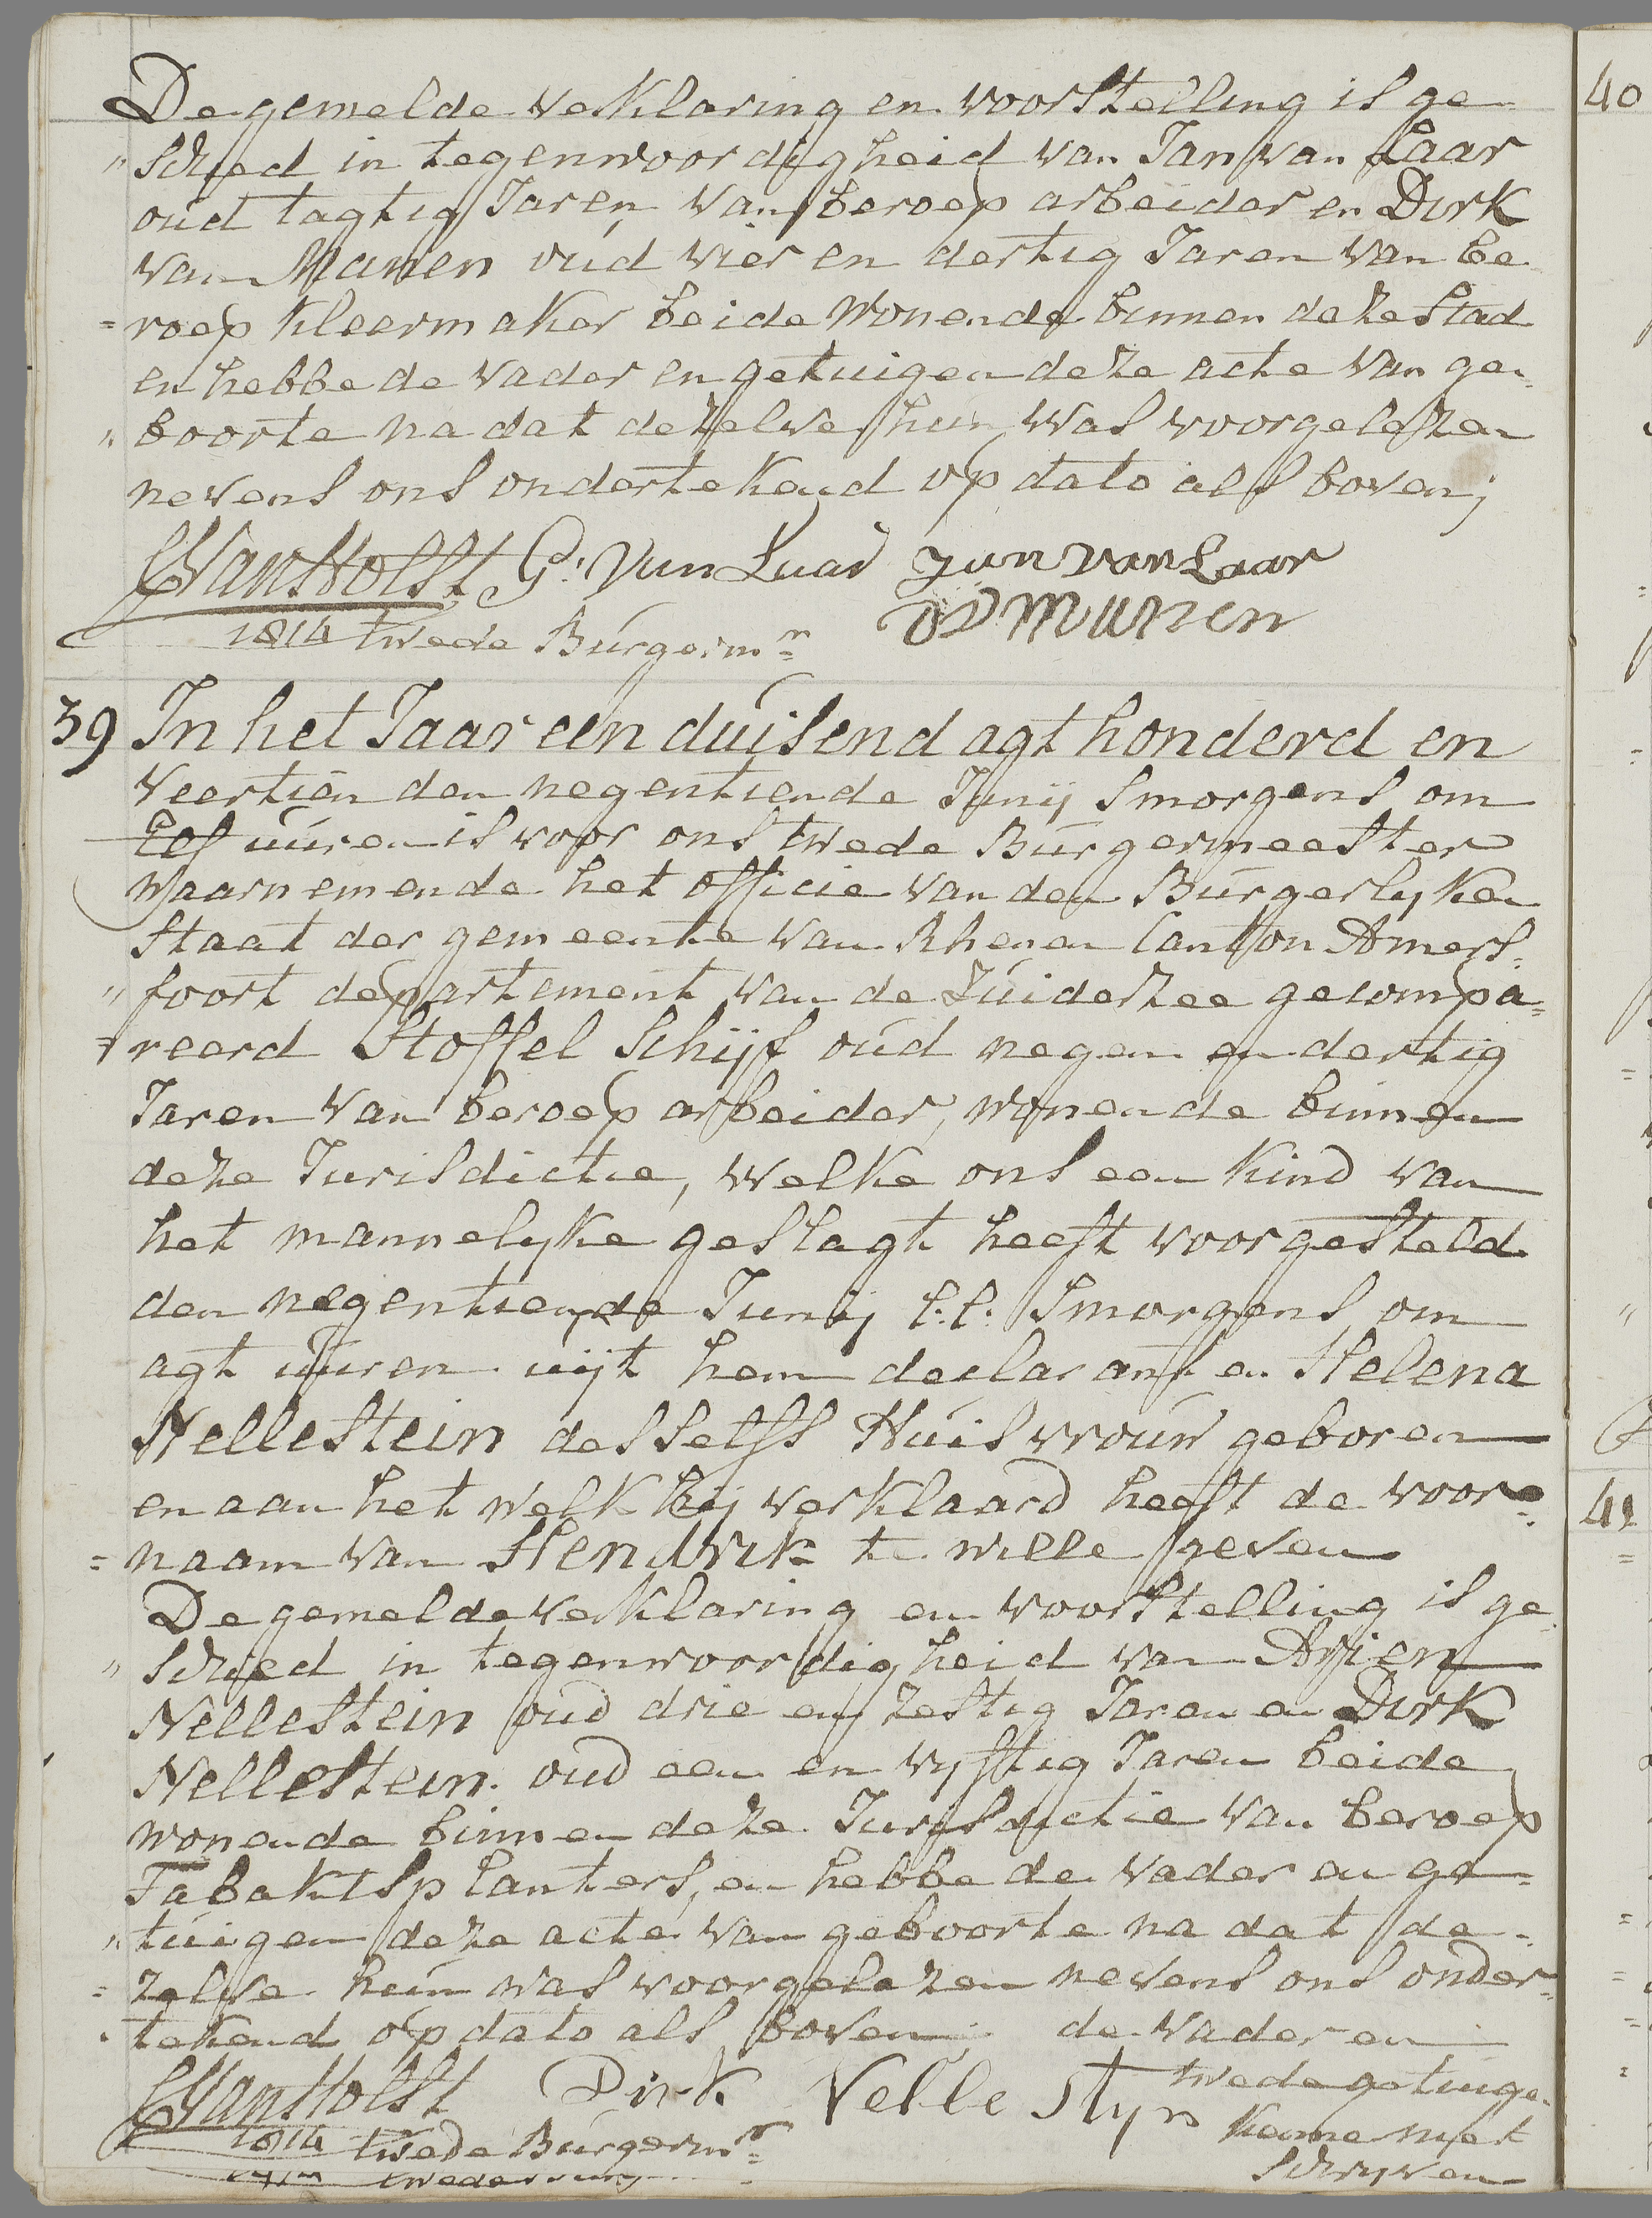 De gemelde verklaring en voorstelling is ge
" schied in tegenwoordigheid van Jan van Laar
oud tagtig Jaren van beroep arbeider en Dirk
van Manen oud vier en dertig Jaren van be
= roep kleermaker beide Wonende binnen deze Stad
en hebbe de vader en getuigen deze acte van ge=
" boorte na dat dezelve hun was voorgelezen
nevens ons ondertekend op dato als boven;
CVanHolst G: Van Laar Jan van Laar
1814 twede Burgermr DV Manen
39 In het Jaar een duisend agt honderd en
Veertien den negentiende Junij Smorgens om
Elf uuren is voor ons twede Burgermeester
Waarnemende het officie van den Burgerlyken
Staat der gemeente van Rhenen Canton Amers=
" foort departement van de Zuiderzee gecompa=
= reerd Stoffel Schijf oud negen en dertig
Jaren van beroep arbeider, wonende binnen
deze Jurisdictie, welke ons een kind van
het mannelyke geslagt heeft voorgesteld
den negentiende Junij l:l: Smorgens om
agt uuren uijt hem declarant en Helena
Nellestein desselfs Huisvrouw geboren
en aan het welk hij verklaard heeft de voor=
= naam van Hendrik te wille geven
De gemelde verklaring en voorstelling is ge
" schied in tegenwoordigheid van Arien
Nellestein oud drie en zestig Jaren en Dirk
Nellestein oud een en vyftig Jaren beide
wonende binnen deze Jurisdictie van beroep
Tabakts planters, en hebbe de vader en ge=
" tuigen deze acte van geboorte na dat de=
= zelve hun was voorgelezen nevens ons onder=
tekend op dato als boven; de vader en
CVanHolst Dirk Nelle Styn twede getuige
1814 twede Burgermr kenne niet
Schryven
40
41